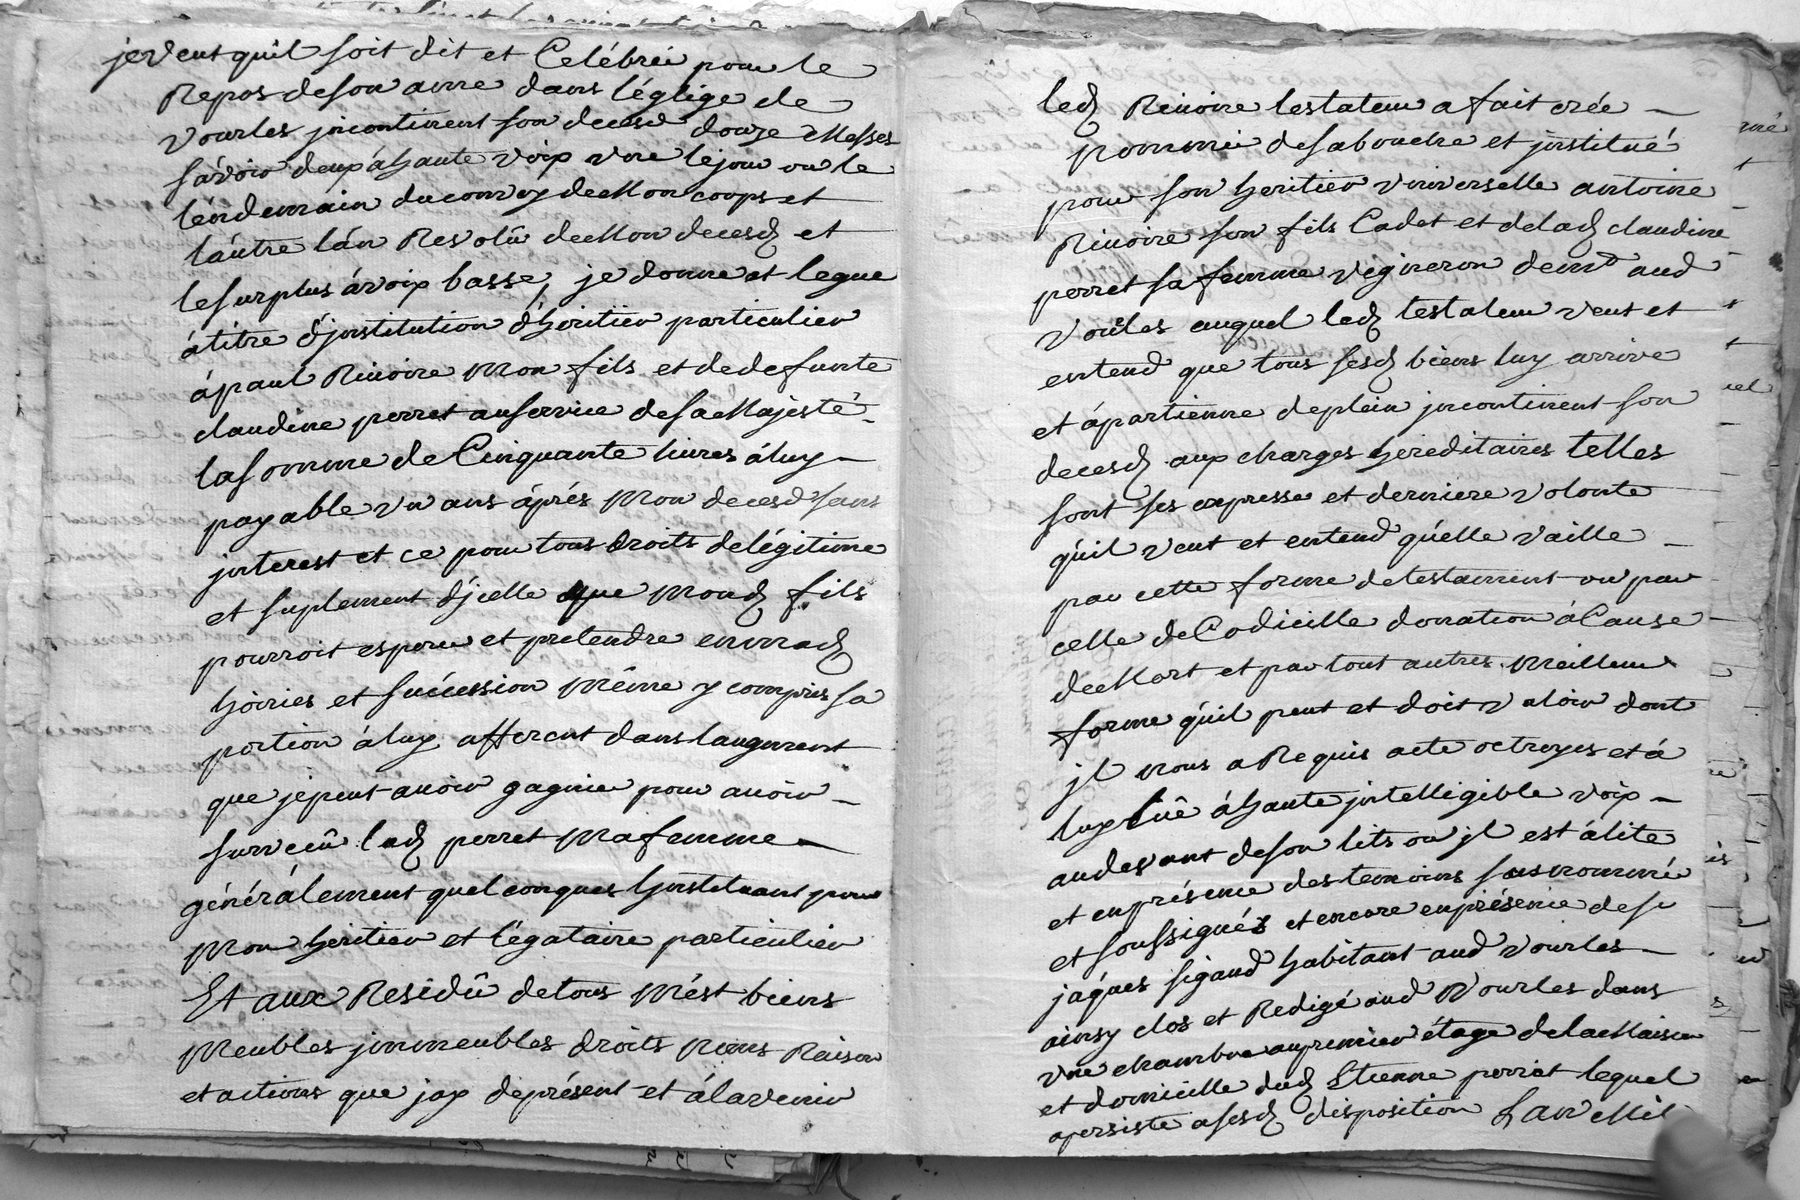 je veut quil soit dit et Celébréé pour le
Repos de son ame dans léglize de
Vourles jncontinent son decesd douze Messes
sávoir deux á haute voix vne le jour ou le
léndemain du convoy de Mon coops et
lautre lán Revolû de Mon decesd et
le surplus ávoix basse, je donne et legue
átitre d'jnstitution d'héritiér particulier
á paul Rivoire Mon fils et de defunte
claudine perret au service de sa Majesté
la somme de Cinquante livres á luy
payable vn ans áprés Mon decesd sans
jnterest et ce pour tous droits de légitime
et suplement d'jcelle que Mond fils
pourroit esperer et pretendre en mad
hoiries et succession Méme y compris sa
portion á luy afferent dans laugment
que je peut avoir gagnié pour avoir
surveçû lad perret Ma femme
généralement quelconques L'jnstituant pour
Mon heritier et légataire particulier
Et aux Residû de tous Mést biens
Meubles jmmeubles droits Noms Raison
et actions que jay deprésent et álavenir
led Rivoire testateur a fait créé
nommé de sa bouche et jnstitué
pour son heritier vniverselle antoine
Rivoire son fils Cadet et de lad claudine
perret sa femme vegneron demt aud
Vourles auquel led testateur veut et
entend que tous sesd biens luy arrive
et ápartienne de plein jncontinent son
decesd aux charges héréditaires telles
sont ses expresse et derniere volonte
qúil veut et entend qúelle vaille
par cette forme de testament ou par
celle de Codicille donation á Cause
de Mort et par tout autres Meilleur
forme qúil peut et doit valoir dont
jl nous a Requis acte octroyes et á
luy lûê á haute jntelligible voix
au devant de son lits ou jl est álité
et en présence des temoins sousnommé
et soussignés et encore en présence de sr
jáques sigaud habitant aud Vourles
ainsy clos et Redigé aud Vourles dans
vne chambre au premier étage de la Maison
et domicille dud Etienne perret lequel
a persiste a sesd disposition Lan Mil